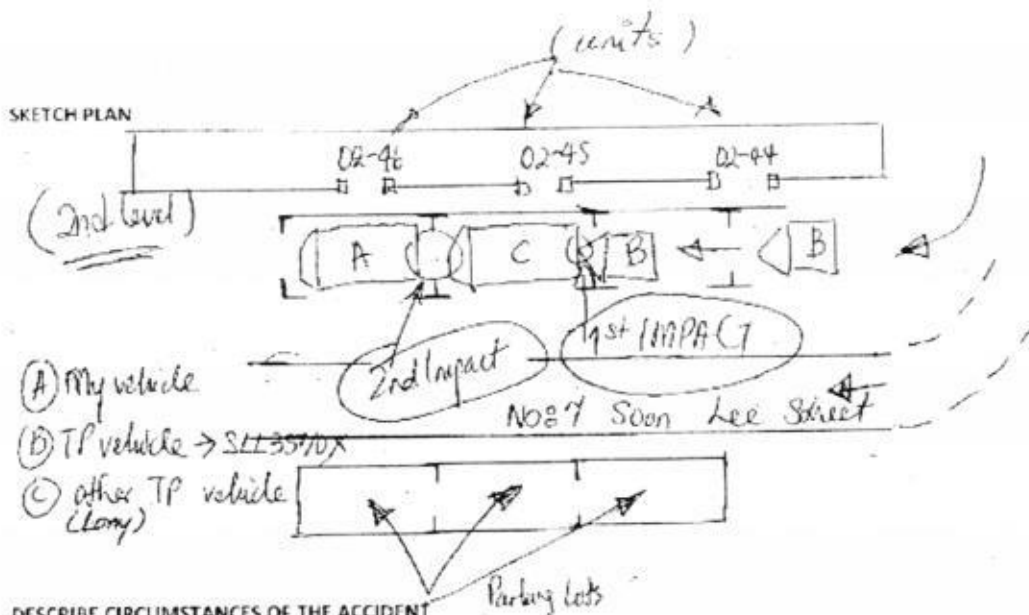 (units)
SKETCH PLAN
02-46 02-45 02-44
(2nd level)
A C B B
2nd Impact 1st IMPACT
(A) My vehicle
No: 7 Soon Lee Street
(B) TP vehicle →
(C) other TP vehicle
(Lorry)
Parking lots
DESCRIBE CIRCUMSTANCES OF THE ACCIDENT